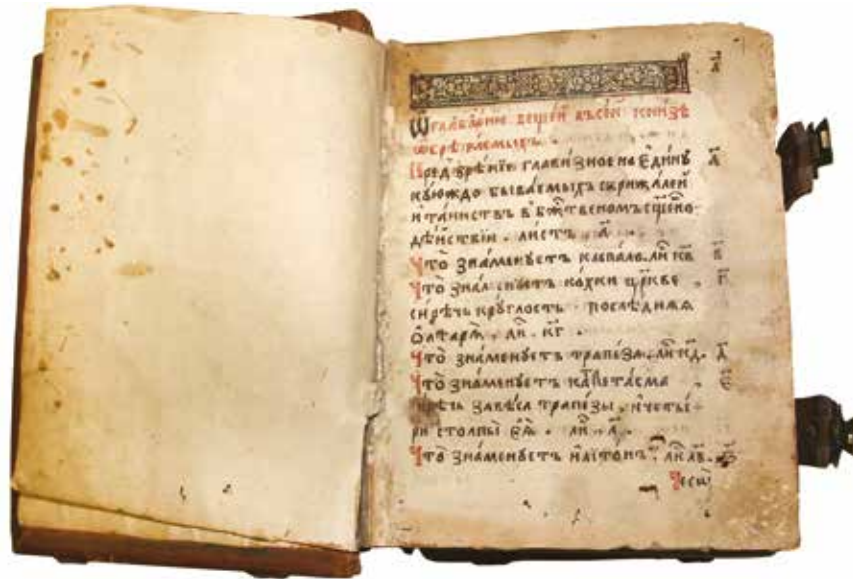 Ѡглавле́нїе веще́й въсе́й кни́зѣ
ѡбрѣта́емыхъ .
Предъзрѣ́нїе глави́зное на є҆ди́ну
ку́юждо быва́емыхъ скрижа́лей
и҆ та́инствъ в бж҃твеномъ сщ҃енно
дѣ́йствїи . ли́стъ . а҃ .
Что̀ зна́менуетъ клепа́ло . ли҃ к҃в в҃
Что̀ зна́менуетъ ко́нхи цр҃кве г҃
си́рѣчь кру́глость послѣ́дняя
ѻ҆лтаря̀ . ли҃ . к҃г .
Что̀ зна́менуетъ трапе́за . ли҃ к҃д . д҃
Что̀ зна́менуетъ катапета́сма є҃
си́рѣчь завѣ́са трапе́зы , и҆ четы́
ри столпы̀ є҆ѧ̀ . ли҃ . л҃ .
Что̀ зна́менуетъ и҆лито́нъ . ли҃ л҃в . ѕ҃
Чесѡ̀